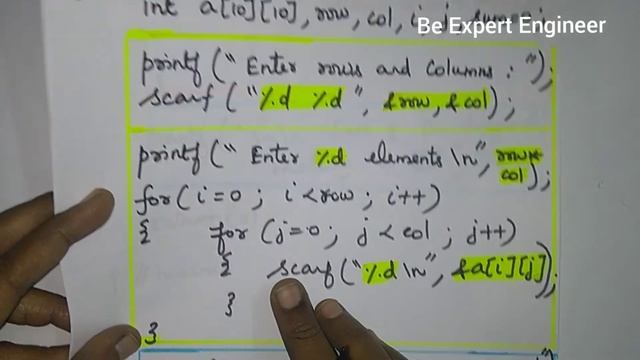 int a[10][10], row, col, i, j,
Be Expert Engineer
printf(" Enter rows and columns : ");
scanf ("%d %d", &row, &col);
printf(" Enter %d elements \n", row*
col);
for( i=0 ; i<row ; i++)
{ for (j=0; j<col ; j++)
{ scanf("%d\n", &a[i][j]);
}
}